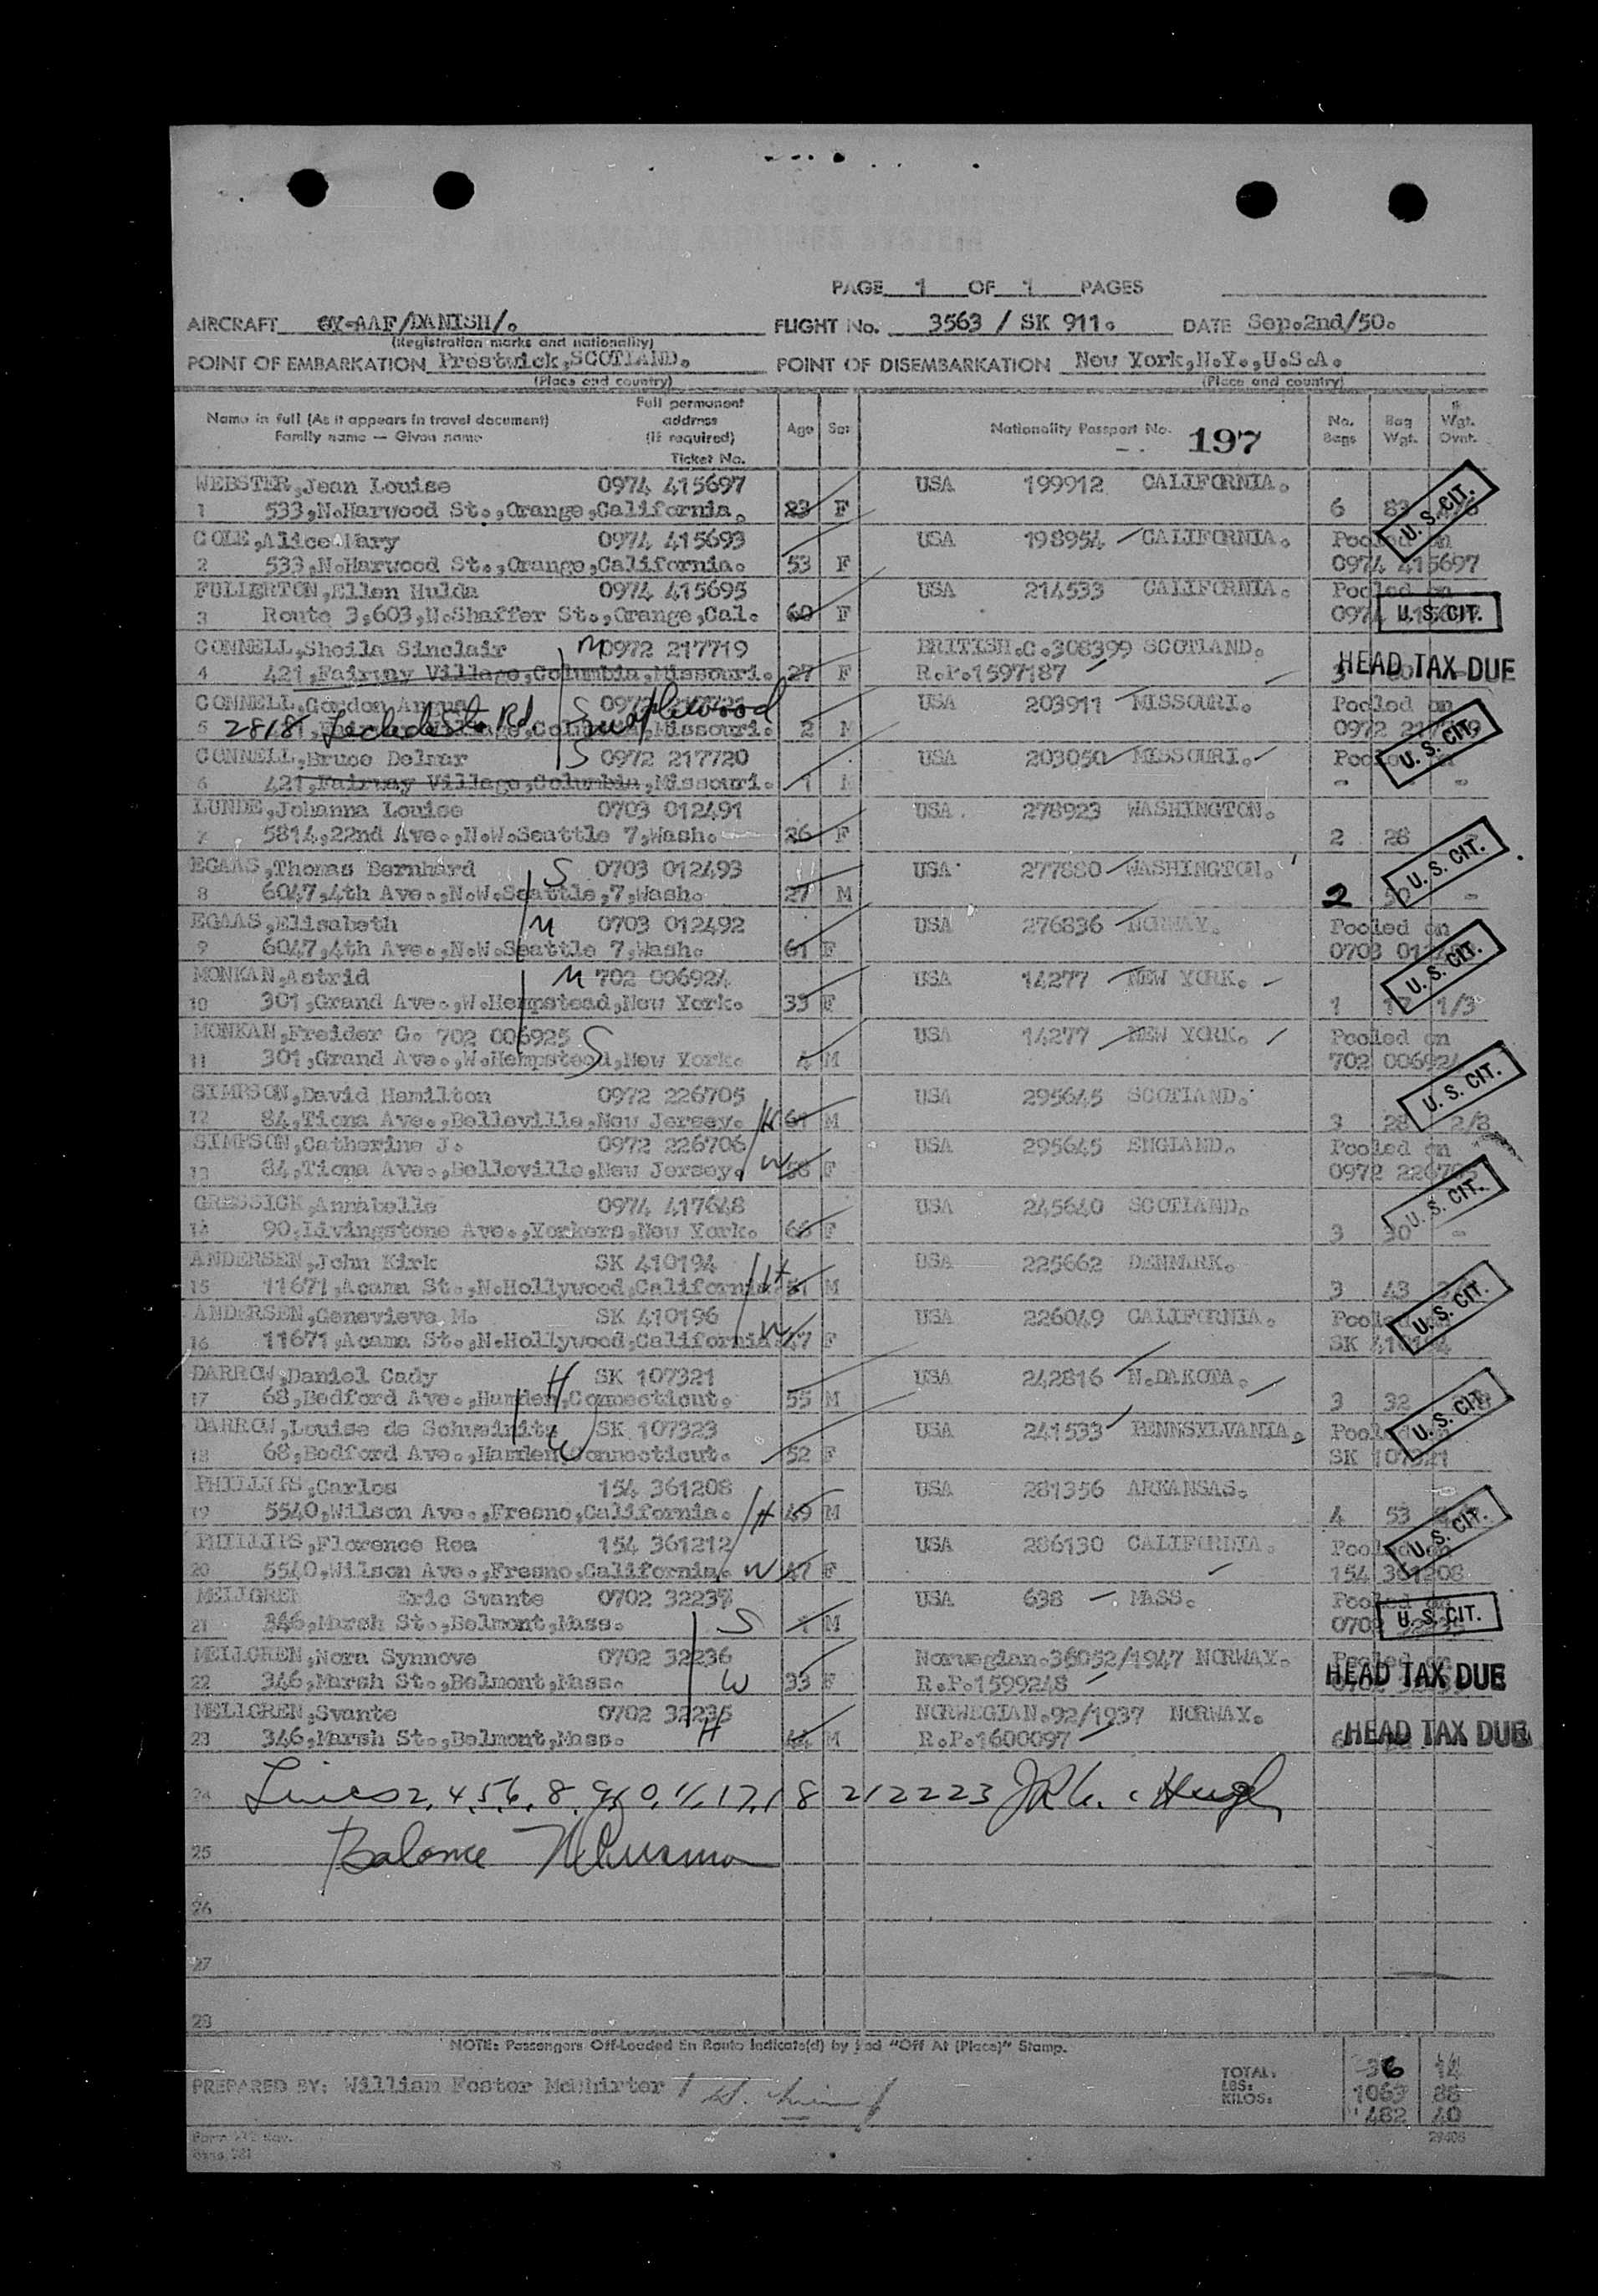 PAGE 1 OF 1 PAGES
AIRCRAFT OY-AAF/DANISH/. FLIGHT No. 3563 / SK 911. DATE Sep.2nd/50.
(Registration marks and nationality)
POINT OF EMBARKATION Prestwick,SCOTLAND. POINT OF DISEMBARKATION New York,N.Y.,U.S.A.
(Place and country) (Place and country)
Name in full (As it appears in travel document) Family name — Given name Full permanent address (if required) Ticket No. Age Sex Nationality Passport No. 197 No. Bags Bag Wgt. Wgt. Ovwt.
WEBSTER,Jean Louise 0974 415697 USA 199912 CALIFORNIA.
1 533,N.Harwood St.,Orange,California. 23 F 6 83 U. S. CIT.
COLE,Alice Mary 0974 415693 USA 198954 CALIFORNIA. Pooled on
2 533,N.Harwood St.,Orange,California. 53 F 0974 415697
FULLERTON,Ellen Hulda 0974 415695 USA 214533 CALIFORNIA. Pooled on
3 Route 3,603,N.Shaffer St.,Orange,Cal. 60 F 0974 U. S. CIT.
CONNELL,Sheila Sinclair M 0972 217719 BRITISH.C.308399 SCOTLAND.
4 421,Fairway Village,Columbia,Missouri. 27 F R.P.1597187 3 HEAD TAX DUE
CONNELL,Gordon Angus S Maplewood USA 203911 MISSOURI. Pooled on
5 2818 Rd Missouri. 2 M 0972 217719 U. S. CIT.
CONNELL,Bruce Delmar S 0972 217720 USA 203050 MISSOURI. Pooled on
6 421,Fairway Village,Columbia,Missouri. 1 M - -
LUNDE,Johanna Louise 0703 012491 USA 278923 WASHINGTON.
7 5814,22nd Ave.,N.W.Seattle 7,Wash. 26 F 2 28 U. S. CIT.
EGAAS,Thomas Bernhard S 0703 012493 USA 277880 WASHINGTON.
8 6047,4th Ave.,N.W.Seattle,7,Wash. 27 M 2 50 -
EGAAS,Elisabeth M 0703 012492 USA 276836 NORWAY. Pooled on
9 6047,4th Ave.,N.W.Seattle 7,Wash. 61 F 0703 U. S. CIT.
MONKAN,Astrid M 702 006924 USA 14277 NEW YORK.
10 301,Grand Ave.,W.Hempstead,New York. 33 F 1 17 1/3
MONKAN,Freider G. 702 006925 S USA 14277 NEW YORK. Pooled on
11 301,Grand Ave.,W.Hempstead,New York. 4 M 702 006924 U. S. CIT.
SIMPSON,David Hamilton 0972 226705 USA 295645 SCOTLAND.
12 84,Tiona Ave.,Belleville,New Jersey. H 61 M 3 28 2/3
SIMPSON,Catherine J. 0972 226706 USA 295645 ENGLAND. Pooled on
13 84,Tiona Ave.,Belleville,New Jersey. W F 0972 226705
GRESSICK,Annabelle 0974 417648 USA 245640 SCOTLAND. U. S. CIT.
14 90,Livingstone Ave.,Yorkers,New York. 66 F 3 30 -
ANDERSEN,John Kirk SK 410194 USA 225662 DENMARK.
15 11671,Acama St.,N.Hollywood,California. H 51 M 3 43
ANDERSEN,Genevieve M. SK 410196 USA 226049 CALIFORNIA. Pooled on U. S. CIT.
16 11671,Acama St.,N.Hollywood,California W 47 F SK 410194
DARROW,Daniel Cady H SK 107321 USA 242816 N.DAKOTA.
17 68,Bedford Ave.,Hamden,Connecticut. 55 M 3 32 U. S. CIT.
DARROW,Louise de Schweinitz SK 107323 USA 241533 PENNSYLVANIA. Pooled on
18 68,Bedford Ave.,Hamden,Connecticut. W 52 F SK 107321
PHILLIPS,Carlos 154 361208 USA 281356 ARKANSAS.
19 5540,Wilson Ave.,Fresno,California. H 49 M 4 53 U. S. CIT.
PHILLIPS,Florence Rea 154 361212 USA 286130 CALIFORNIA. Pooled on
20 5540,Wilson Ave.,Fresno,California. W 47 F 154 361208
MELLGREN Eric Svante 0702 32237 USA 638 MASS. Pooled on
21 346,Marsh St.,Belmont,Mass. S 1 M 0702 U. S. CIT.
MELLGREN,Nora Synnove 0702 32236 Norwegian.36052/1947 NORWAY.
22 346,Marsh St.,Belmont,Mass. W 33 F R.P.1599248 HEAD TAX DUE
MELLGREN,Svante 0702 32235 NORWEGIAN.92/1937 NORWAY.
23 346,Marsh St.,Belmont,Mass. H 44 M R.P.1600097 6 HEAD TAX DUE
24 Lines 2,4,5,6,8,9,10,11,17,18 21 22 23
25 Balance
26
27
28
NOTE: Passengers Off-Loaded En Route Indicate(d) by Red "Off At (Place)" Stamp.
PREPARED BY: William Foster McWhirter /
TOTAL: 36 14
LBS: 1063 88
KILOS: 482 40
29406